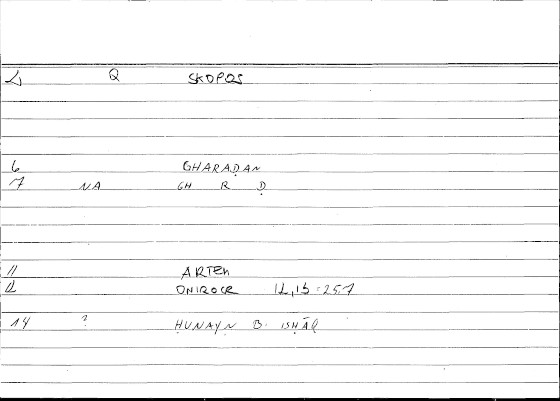 1 Q SKOPOS
6 GHARAḌAN
7 NA GH R Ḍ
11 ARTEM
12 ONIROCR 12,15 = 25.7
14 ? ḤUNAYN B. ISḤĀQ